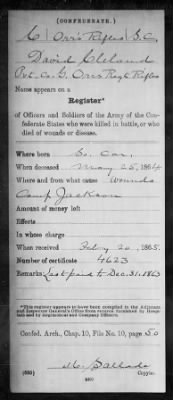 (CONFEDERATE.)
C Orr's Rifles S.C.
David Cleland
Pvt. Co. G. Orr's Regt Rifles
Name appears on a
Register*
of Officers and Soldiers of the Army of the Confederate States who were killed in battle, or who
died of wounds or disease.
Where born So. Car.
When deceased May 25, 1864
Where and from what cause Wounds
Camp Jackson
Amount of money left
Effects
In whose charge
When received Feby 20, 1865.
Number of certificate 4623
Remarks Last paid to Dec. 31, 1863
*This register appears to have been compiled in the Adjutant
and Inspector General's Office from records furnished by Hospitals
and by Regimental and Company Officers.
Confed. Arch., Chap. 10, File No. 10, page 50
Sallade
Copyist.